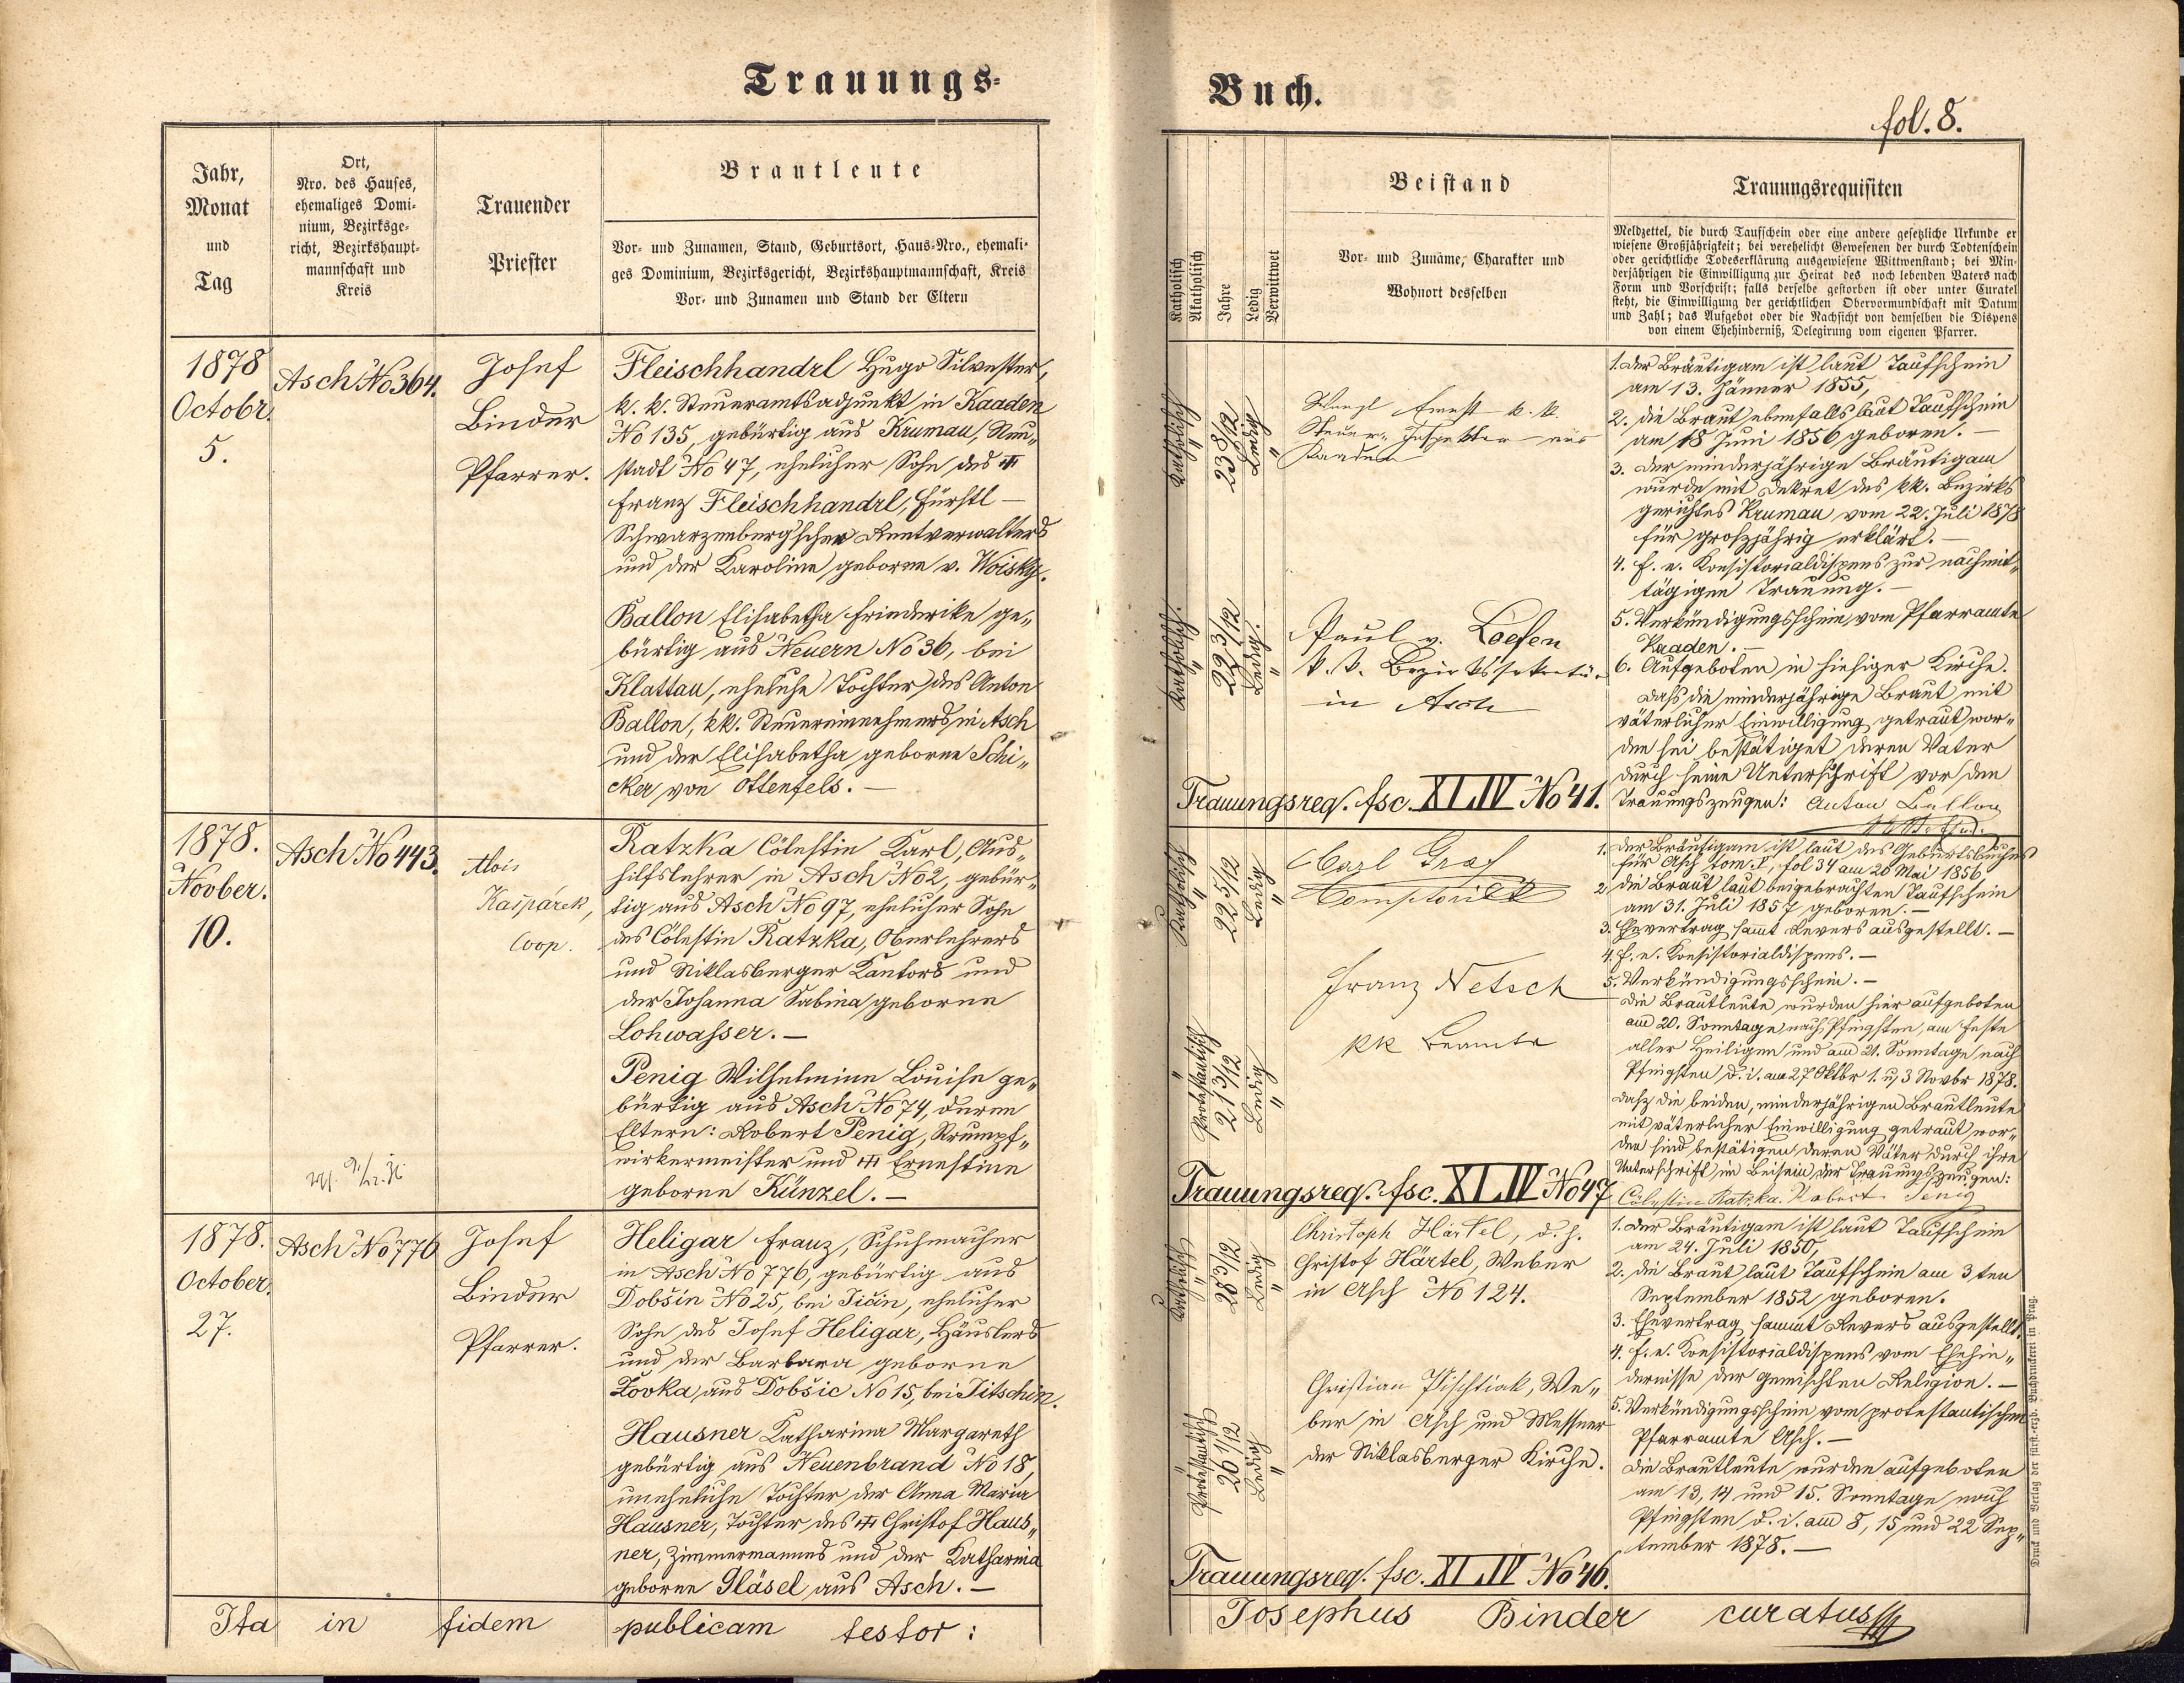 Trauungs-
Buch.
fol. 8.
Jahr,
Monat
und
Tag
Ort,
Nro. des Hauses,
ehemaliges Domi-
nium, Bezirksge-
richt, Bezirkshaupt-
mannschaft und
Kreis
Trauender
Priester
Brautleute
Vor- und Zunamen, Stand, Geburtsort, Haus-Nro., ehemali-
ges Dominium, Bezirksgericht, Bezirkshauptmannschaft, Kreis
Vor- und Zunamen und Stand der Eltern
Katholisch
Akatholisch
Jahre
Ledig
Verwittwet
Beistand
Vor- und Zuname, Charakter und
Wohnort desselben
Trauungsrequisiten
Meldzettel, die durch Taufschein oder eine andere gesetzliche Urkunde er
wiesene Großjährigkeit; bei verehelicht Gewesenen der durch Todtenschein
oder gerichtliche Todeserklärung ausgewiesene Wittwenstand; bei Min-
derjährigen die Einwilligung zur Heirat des noch lebenden Vaters nach
Form und Vorschrift; falls derselbe gestorben ist oder unter Curatel
steht, die Einwilligung der gerichtlichen Obervormundschaft mit Datum
und Zahl; das Aufgebot oder die Nachsicht von demselben die Dispens
von einem Ehehinderniß, Delegirung vom eigenen Pfarrer.
1878
Octobr.
5.
Asch No 364.
Josef
Binder
Pfarrer.
Fleischhandrl Hugo Silvester,
k. k. Steueramtsadjunkt in Kaaden
No 135, gebürtig aus Krumau, Neu„
stadt No 47, ehelicher Sohn des
Franz Fleischhandrl, fürstl –
Schwarzenberg'schen Rentverwalters
und der Karoline geborne v. Woisky.
Ballon Elisabetha Friederike ge„
bürtig aus Neuern No 36, bei
Klattau, eheliche Tochter des Anton
Ballon, kk. Steuereinnehmers in Asch
und der Elisabetha geborne Schi„
cker von Ottenfels. –
Katholisch
23 8/12
Ledig
Ernst k. k.
Steuer-Inspektor aus
Kaaden
Katholisch.
22 3/12
Ledig.
Paul v. Loefen
k. k. Bezirkssekretär
in Asch
Trauungsreq. fsc. XLIV No 41.
1. Der Bräutigam ist laut Taufschein
am 13. Jänner 1855,
2. die Braut ebenfalls laut Taufschein
am 18 Juni 1856 geboren. –
3. Der minderjährige Bräutigam
wurde mit Dekret des kk. Bezirks
gerichtes Krumau vom 22. Juli 1878
für großjährig erklärt. –
4. f. e. Konsistorialdispens zur nachmit„
tägigen Trauung. –
5. Verkündigungsschein vom Pfarramte
Kaaden. –
6. Aufgeboten in hiesiger Kirche.
Daß die minderjährige Braut mit
väterlicher Einwilligung getraut wor„
den sei bestätiget deren Vater
durch seine Unterschrift vor den
Trauungszeugen: Anton Ballon
1878.
Novber.
10.
Asch No 443.
Alois
Kašpárek,
Coop.
Ratzka Cölestin Karl, Aus„
hilfslehrer in Asch No 2, gebür„
tig aus Asch No 97, ehelicher Sohn
des Cölestin Ratzka, Oberlehrers
und Niklasberger Kantors und
der Johanna Sabina geborne
Lohwasser. –
Penig Wilhelmine Louise ge„
bürtig aus Asch No 74, deren
Eltern: Robert Penig, Strumpf„
wirkermeister und Ernestine
geborne Künzel. –
Katholisch
22 5/12
Ledig
Karl Graf
Comptorist
Franz Netsch
kk Beamte
Protestantisch
21 3/12
Ledig
Trauungsreq. fsc. XLIV No 47
1. Der Bräutigam ist laut des Geburtsbuches
für Asch tom. V, fol 34 am 20 Mai 1856,
2. die Braut laut beigebrachten Taufschein
am 31. Juli 1857 geboren. –
3. Ehevertrag samt Revers ausgestellt. –
4. f. e. Konsistorialdispens. –
5. Verkündigungsschein. –
Die Brautleute wurden hier aufgeboten
am 20. Sonntage nach Pfingsten, am Feste
aller Heiligen und am 21. Sonntage nach
Pfingsten d. i. am 27 Oktbr 1. u. 3 Novbr 1878.
Daß die beiden, minderjährigen Brautleute
mit väterlicher Einwilligung getraut wor„
den sind bestätigen deren Väter durch ihre
Unterschrift in Beisein der Trauungszeugen:
Cölestin Ratzka. Robert Penig
1878.
October.
27.
Asch No 776
Josef
Binder
Pfarrer.
Heligar Franz, Schuhmacher
in Asch No 776, gebürtig aus
Dobšin No 25, bei Jičin, ehelicher
Sohn des Josef Heligar, Häuslers
und der Barbara geborne
Žovka aus Dobšic No 15, bei Jitschin.
Hausner Katharina Margareth
gebürtig aus Neuenbrand No 18,
uneheliche Tochter der Anna Maria
Hausner, Tochter des Christof Haus„
ner, Zimmermannes und der Katharina
geborne Gläsel aus Asch. –
Katholisch
28 3/12
Ledig
Christoph Härtel, d. h.
Christof Härtel, Weber
in Asch No 124.
Protestantisch
26 1/12
Ledig
Christian Pischtiak, We„
ber in Asch und Messner
der Niklasberger Kirche.
Trauungsreq. fsc. XLIV No 46.
1. Der Bräutigam ist laut Taufschein
am 24. Juli 1850,
2. die Braut laut Taufschein am 3ten
September 1852 geboren.
3. Ehevertrag sammt Revers ausgestellt.
4. f. e. Konsistorialdispens vom Ehehin„
dernisse der gemischten Religion. –
5. Verkündigungsschein vom protestantischen
Pfarramte Asch. –
Die Brautleute wurden aufgeboten
am 13, 14 und 15. Sonntage nach
Pfingsten d. i. am 8, 15 und 22 Sep„
tember 1878. –
Ita in fidem publicam testor:
Josephus Binder curatus
Druck und Verlag der fürst.-erzb. Buchdruckerei in Prag.